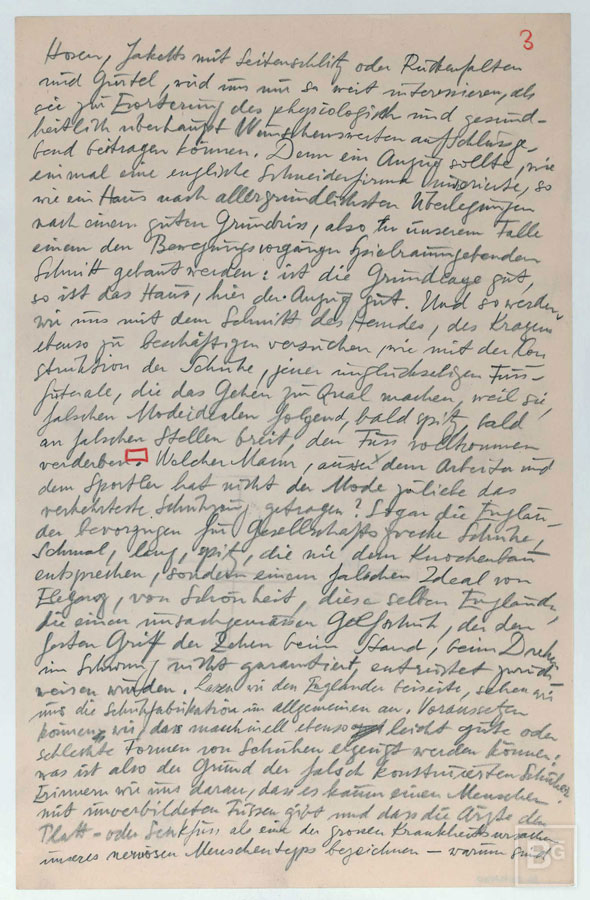 3
Hosen, Jaketts mit Seitenschlitz oder Rückenfalten
und Gürtel, wird uns nur so weit interessieren, als
sie zur Erörterung des physiologisch und gesund-
heitlich überhaupt Wünschenswerten aufschlussge-
bend beitragen können. Denn ein Anzug sollte, wie
einmal eine englische Schneiderfirma inserierte, so
wie ein Haus nach allergründlichsten Überlegungen
nach einem guten Grundriss, also in unserem Falle
einem den Bewegungsvorgängen spielraumgebenden
Schnitt gebaut werden: ist die Grundlage gut,
so ist das Haus, hier der Anzug gut. Und so werden
wir uns mit dem Schnitt des Hemdes, des Kragens
ebenso zu beschäftigen versuchen, wie mit der Kon
struktion der Schuhe, jener unglückseligen Fuss-
futerale, die das Gehen zur Qual machen, weil sie,
falschen Modeidealen folgend, bald spitz, bald
an falschen Stellen breit, den Fuss vollkommen
verderben. Welcher Mann, ausser dem Arbeiter und
dem Sportler hat nicht der Mode zuliebe das
verkehrteste Schuhzeug getragen? Sogar die Englän-
der bevorzugen für Gesellschaftszwecke Schuhe,
schmal, lang, spitz, die nie dem Knochenbau
entsprechen, sondern einem falschen Ideal von
Eleganz, von Schönheit, diese selben Engländer,
die einen unsachgemässen Golfschuh, der den
festen Griff der Zehen beim Stand, beim Drehen
im Schwung nicht garantiert, entrüstet zurück-
weisen würden. Lassen wir den Engländer beiseite, sehen wir
uns die Schuhfabrikation im allgemeinen an. Voraussetzen
können wir, dass maschinell ebenso leicht gute oder
schlechte Formen von Schuhen erzeugt werden können:
was ist also der Grund der falsch konstruierten Schuhe?
Erinnern wir uns daran, dass es kaum einen Menschen
mit unverbildeten Füssen gibt und dass die Ärzte den
Platt- oder Senkfuss als eine der grossen Krankheitsursachen
unseres nervösen Menschentyps bezeichnen – warum sind
BG